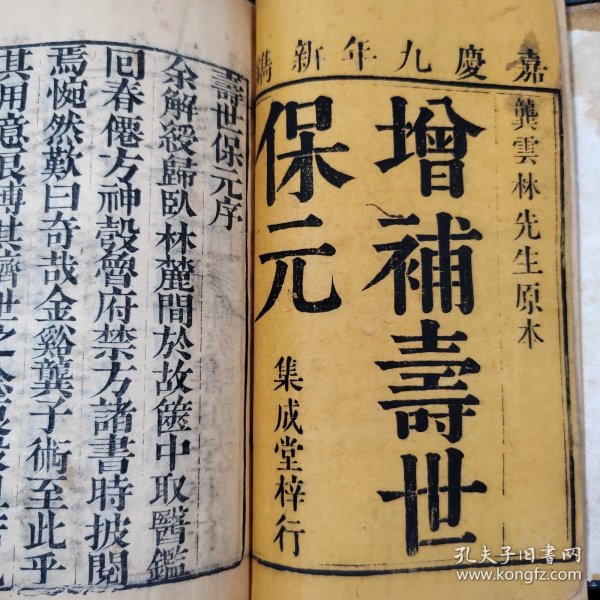 嘉慶九年新鐫
龔雲林先生原本
增補壽世
保元
集成堂梓行
壽世保元序
余解綬歸臥林麓間於故篋中取醫鑑
回春僊方神彀魯府禁方諸書時披閱
焉惋然歎曰奇哉金谿龔子術至此乎
其用意良博其濟世之
孔夫子旧书网
www.kongfz.com